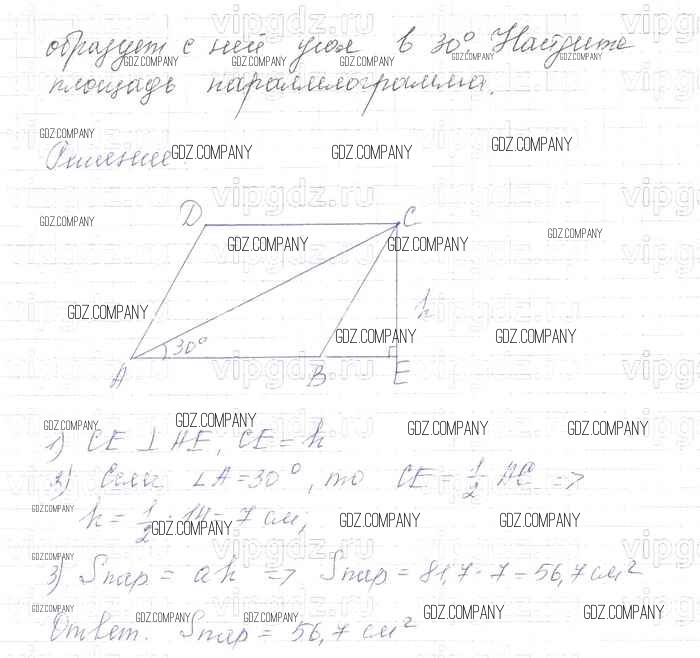 образует с ней угол в 30°. Найдите
площадь параллелограмма.
Решение.
D C
h
30°
A B E
1) CE ⊥ AE, CE = h
2) Если ∠A = 30°, то CE = 1/2 AC =>
h = 1/2 · 14 = 7 см;
3) Sпар = ah => Sпар = 81,7 · 7 = 56,7 см²
Ответ. Sпар = 56,7 см²
GDZ.COMPANY
vipgdz.ru